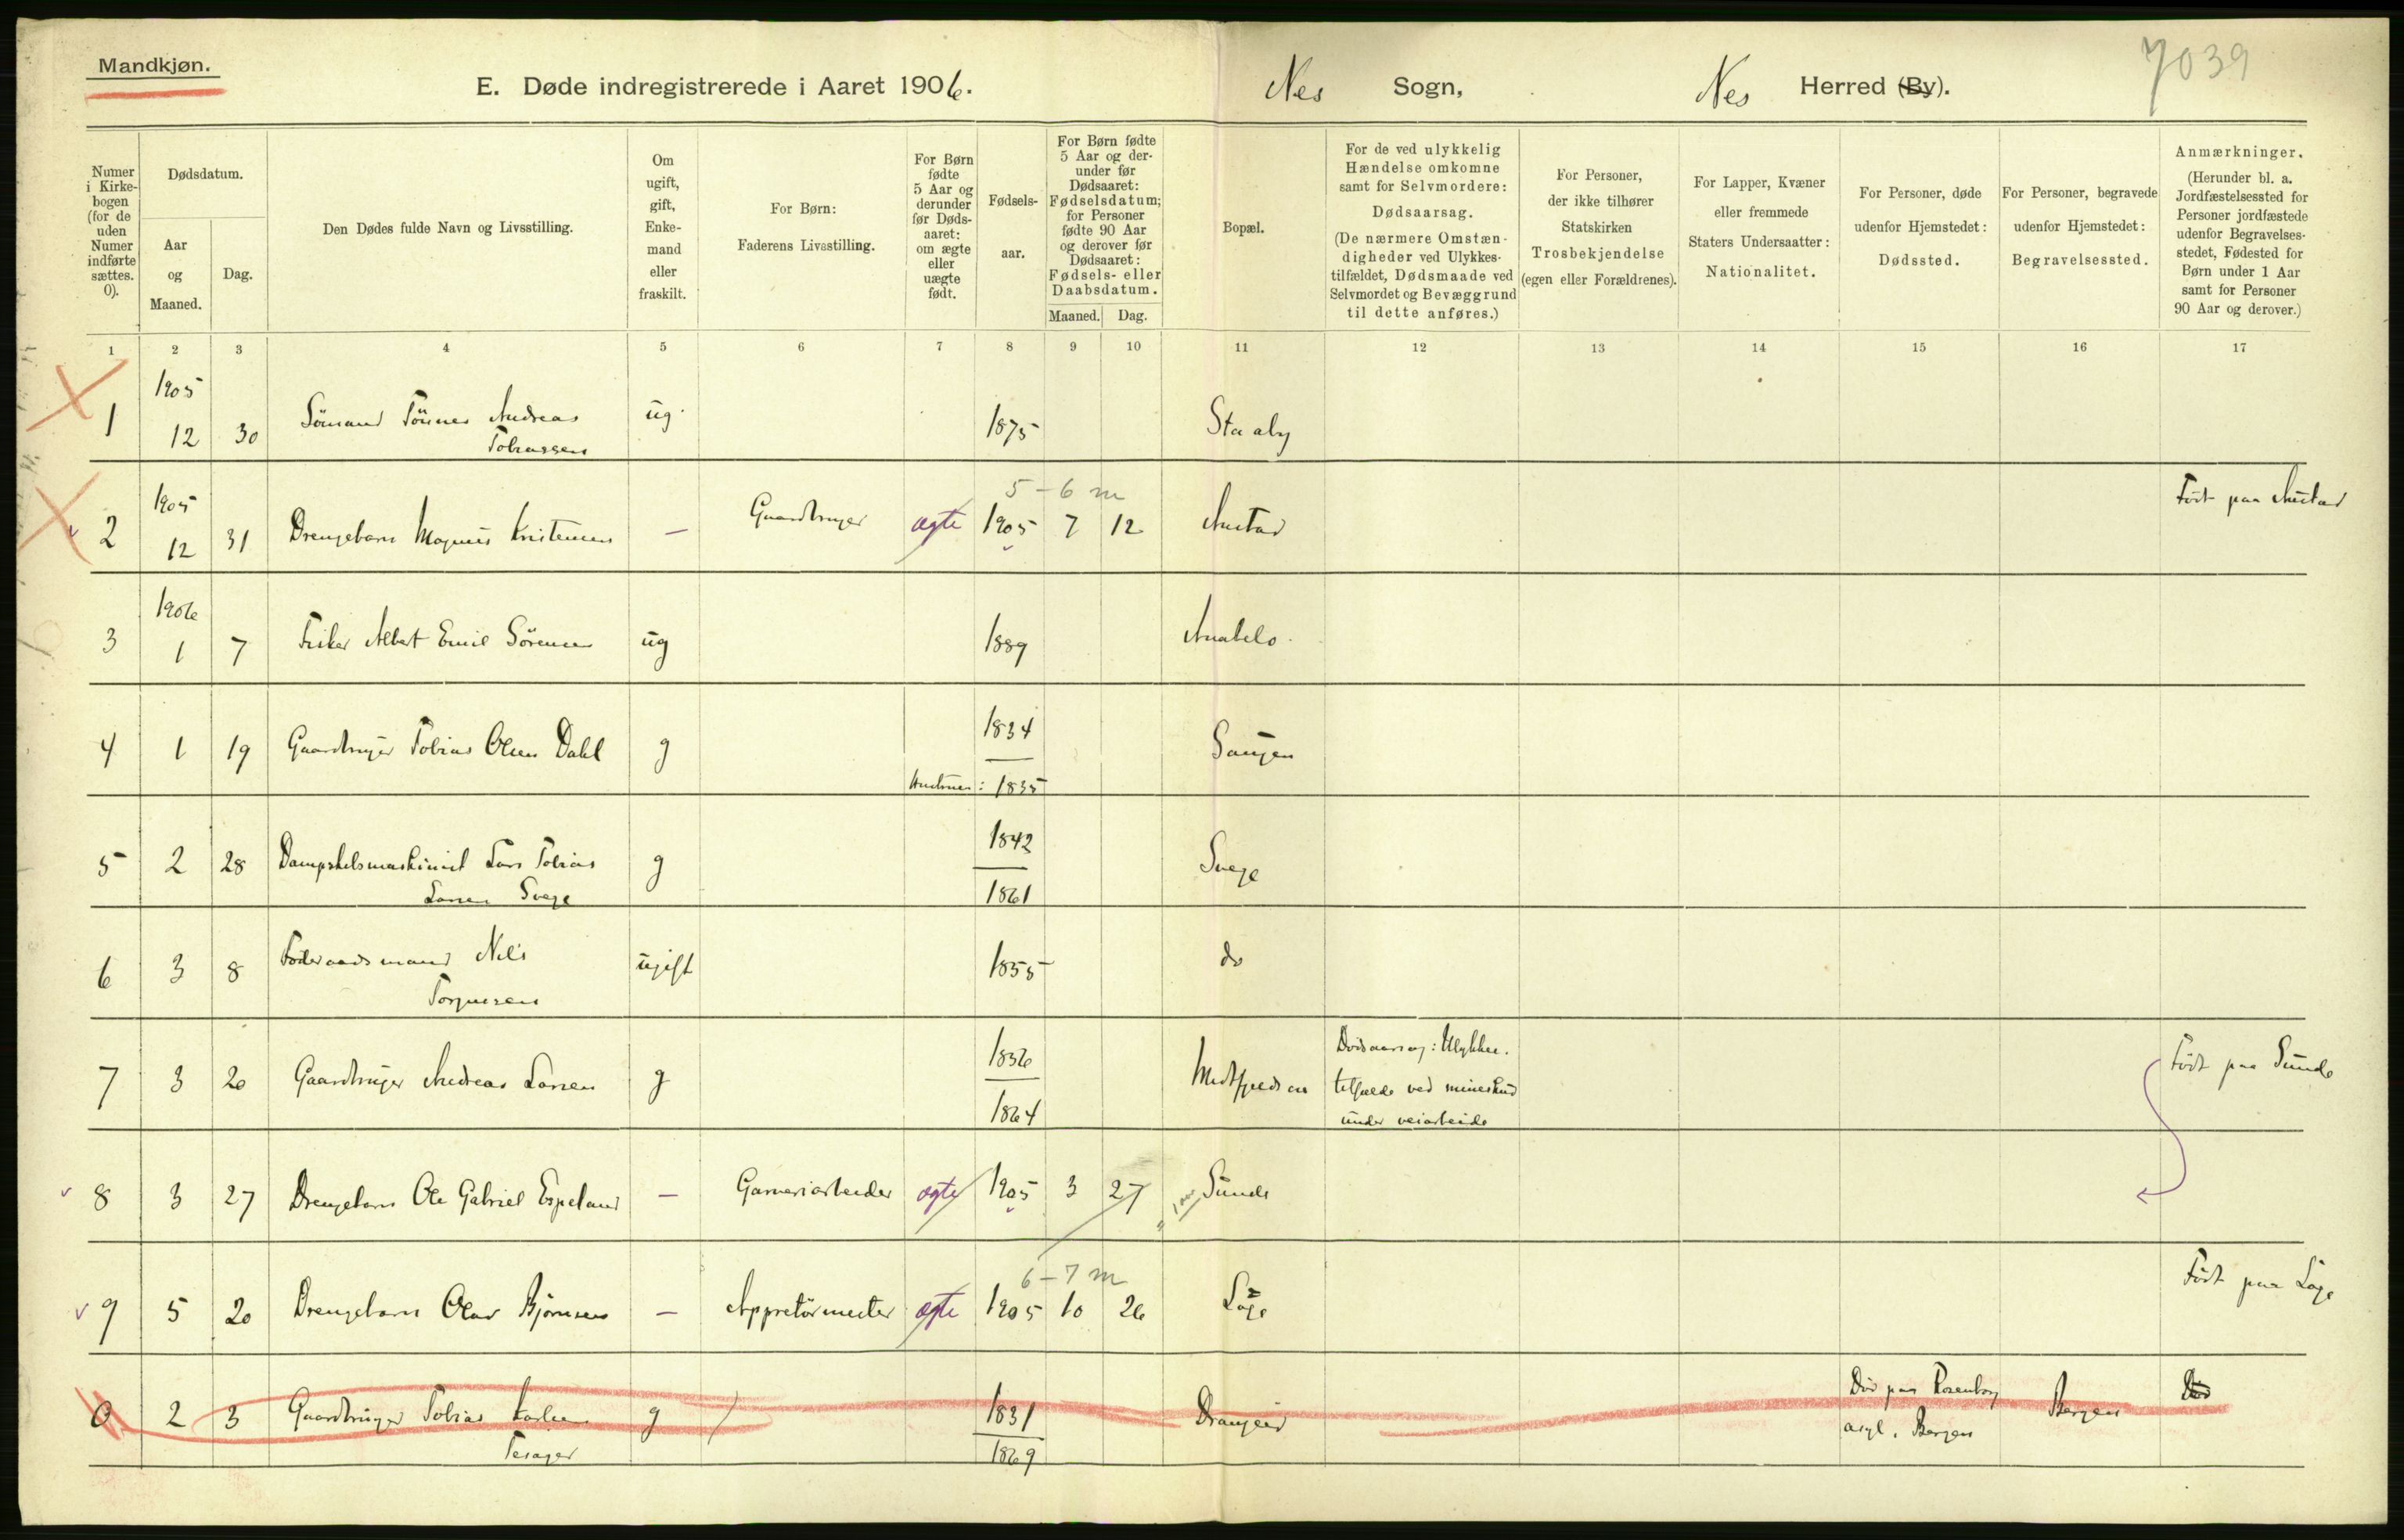 Mandkjøn.
E. Døde indregistrerede i Aaret 1906.
Nes Sogn,
Nes Herred (By).
7039
Numer i Kirkebogen (for de uden Numer indførte sættes. 0).
Dødsdatum.
Aar og Maaned.
Dag.
Den Dødes fulde Navn og Livsstilling.
Om ugift, gift, Enkemand eller fraskilt.
For Børn:
Faderens Livsstilling.
For Børn fødte 5 Aar og derunder før Dødsaaret: om ægte eller uægte født.
Fødselsaar.
For Børn fødte 5 Aar og derunder før Dødsaaret: Fødselsdatum; for Personer fødte 90 Aar og derover før Dødsaaret: Fødsels- eller Daabsdatum.
Maaned. Dag.
Bopæl.
For de ved ulykkelig Hændelse omkomne samt for Selvmordere:
Dødsaarsag.
(De nærmere Omstændigheder ved Ulykkestilfældet, Dødsmaade ved Selvmordet og Bevæggrund til dette anføres.)
For Personer, der ikke tilhører Statskirken
Trosbekjendelse
(egen eller Forældrenes).
For Lapper, Kvæner eller fremmede Staters Undersaatter:
Nationalitet.
For Personer, døde udenfor Hjemstedet:
Dødssted.
For Personer, begravede udenfor Hjemstedet:
Begravelsessted.
Anmærkninger.
(Herunder bl. a. Jordfæstelsessted for Personer jordfæstede udenfor Begravelsesstedet, Fødested for Børn under 1 Aar samt for Personer 90 Aar og derover.)
1 2 3 4 5 6 7 8 9 10 11 12 13 14 15 16 17
1905
1 12 30 Sömand Tönnes Andreas Tobiassen ug. 1875 Staaly
1905
5-6 m
2 12 31 Drengebarn Magnus Kristensen — Gaardbruger ægte 1905 7 12 Austad Födt paa Austad
1906
3 1 7 Fisker Albert Emil Sörensen ug 1889
4 1 19 Gaardbruger Tobias Olsen Dahl g 1834
Hustrues: 1835
5 2 28 Dampskibsmaskinist Lars Tobias g 1842 Svege
Larsen Svege 1861
6 3 8 Föderaadsmand Nils ugift 1855 do
Torgussen
7 3 20 Gaardbruger Andreas Larsen g 1836
1864
Dödsaarsag: Ulykkes.
tilfælde ved mineskud
under veiarbeide
Födt paa Sunde
8 3 27 Drengebarn Ole Gabriel Espeland — Garveriarbeider ægte 1905 3 27 1 aar Sunde
6-7 m
9 5 20 Drengebarn Olav Björnsen — Appretörmester ægte 1905 10 26 Loge Födt paa Loge
0 2 3 Gaardbruger Tobias Karlsen g 1831 Drangeid
Tesager 1869
Död paa Rosenborg
asyl. Bergen
Bergen
Död